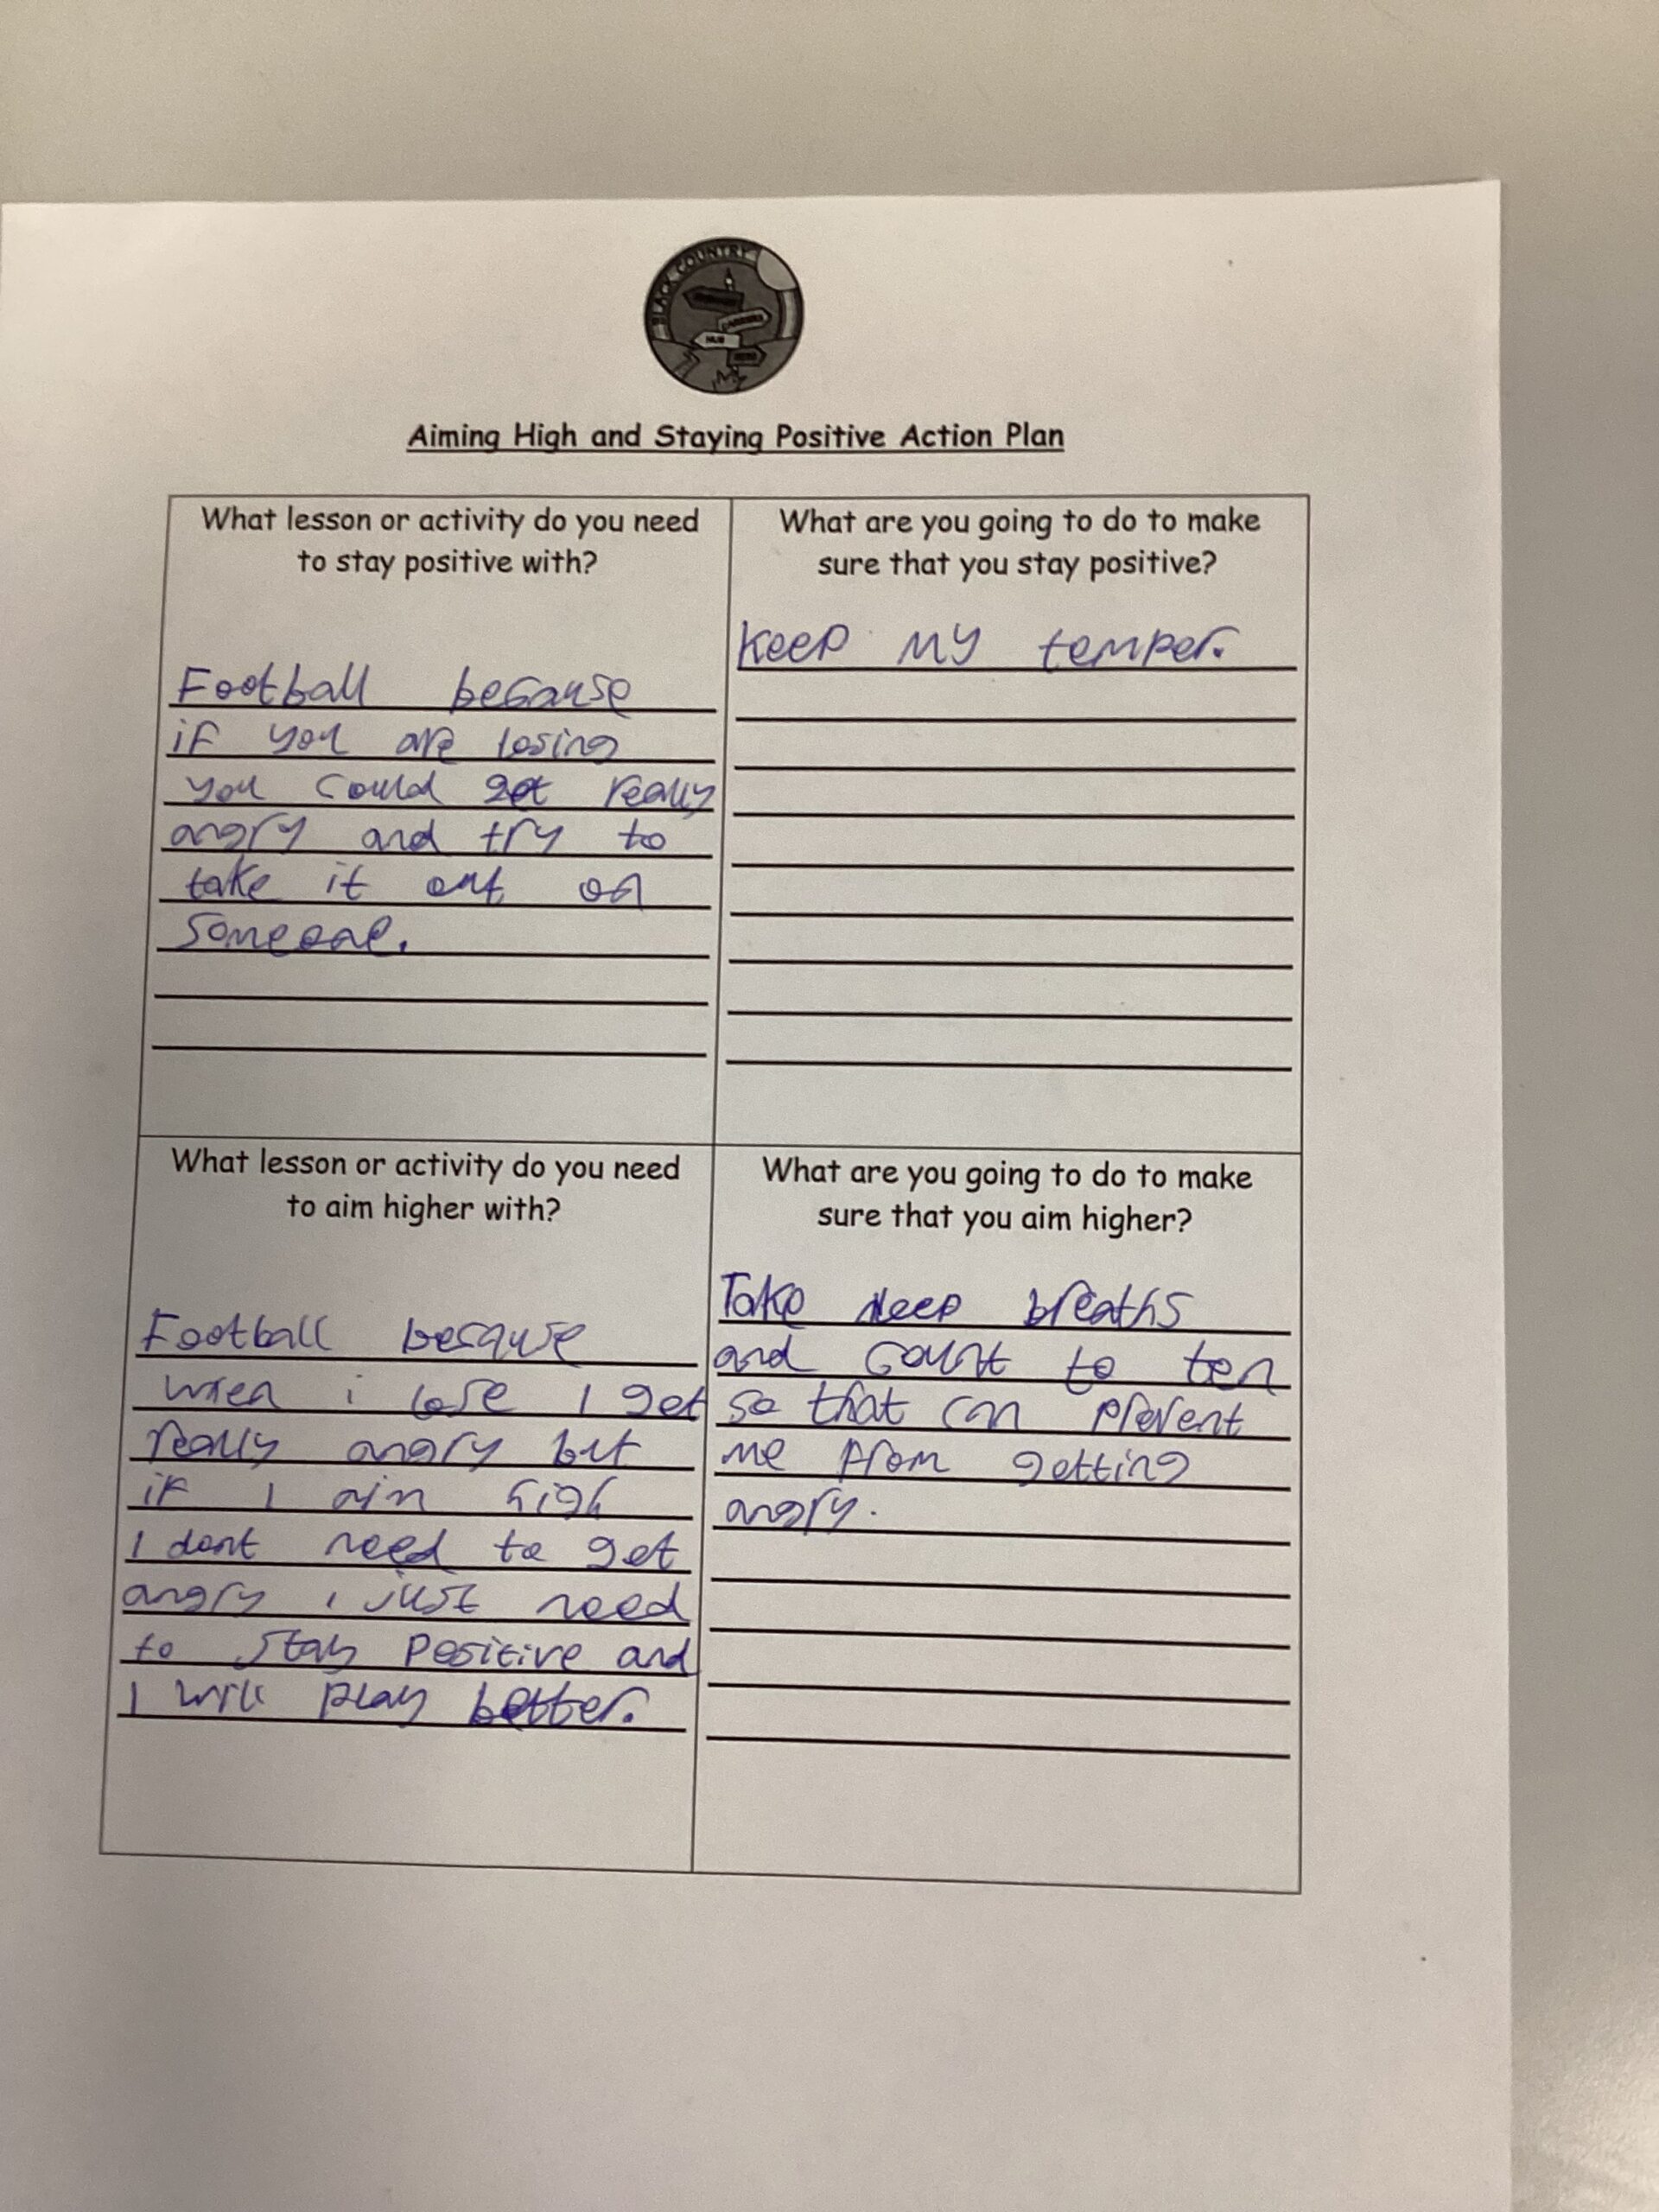 BLACK COUNTRY
HUB
Aiming High and Staying Positive Action Plan
What lesson or activity do you need
to stay positive with?
Football because
if you are losing
you could get really
angry and try to
take it out on
someone.
What are you going to do to make
sure that you stay positive?
Keep my temper.
What lesson or activity do you need
to aim higher with?
Football because
when i lose I get
really angry but
if I aim high
I dont need to get
angry i just need
to stay positive and
I will play better.
What are you going to do to make
sure that you aim higher?
Take deep breaths
and count to ten
so that can prevent
me from getting
angry.